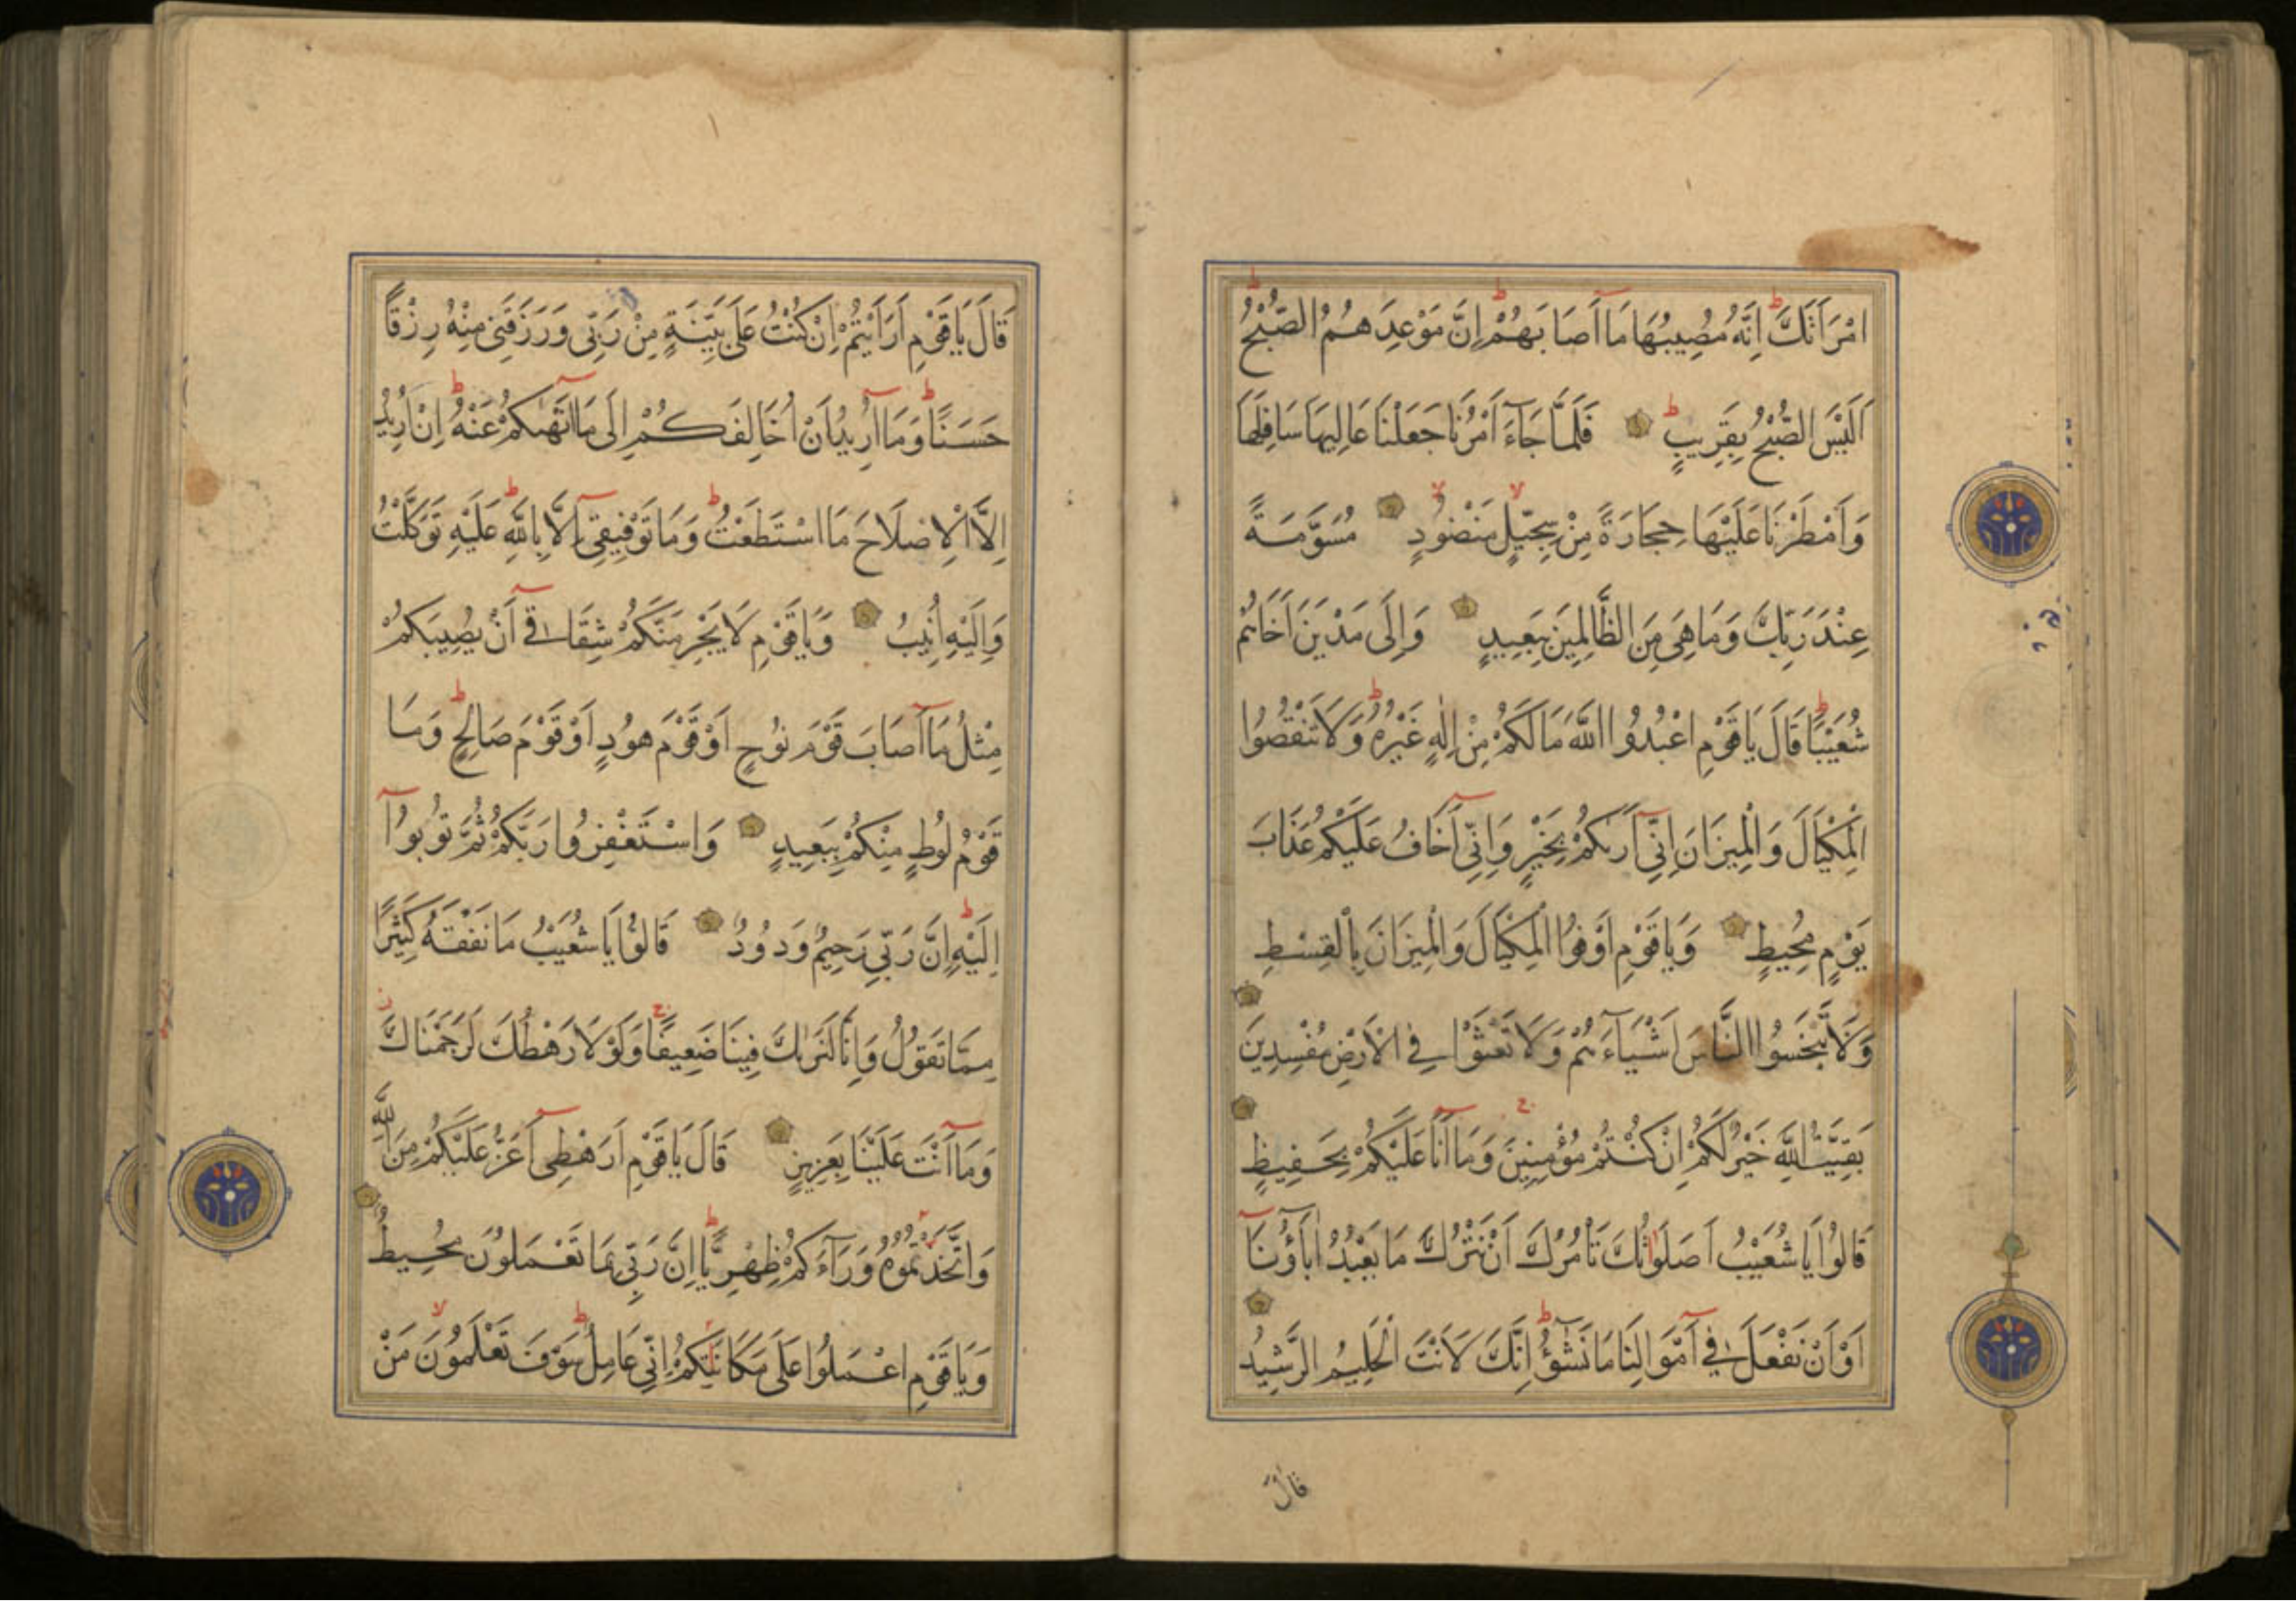 امْرَاَتَكَ اِنَّهُ مُصِيبُهَا مَا اَصَابَهُمْ اِنَّ مَوْعِدَهُمُ الصُّبْحُ
اَلَيْسَ الصُّبْحُ بِقَرِيبٍ فَلَمَّا جَاءَ اَمْرُنَا جَعَلْنَا عَالِيَهَا سَافِلَهَا
وَاَمْطَرْنَا عَلَيْهَا حِجَارَةً مِنْ سِجِّيلٍ مَنْضُودٍ مُسَوَّمَةً
عِنْدَ رَبِّكَ وَمَا هِيَ مِنَ الظَّالِمِينَ بِبَعِيدٍ وَاِلَى مَدْيَنَ اَخَاهُمْ
شُعَيْبًا قَالَ يَا قَوْمِ اعْبُدُوا اللَّهَ مَا لَكُمْ مِنْ اِلٰهٍ غَيْرُهُ وَلَا تَنْقُصُوا
الْمِكْيَالَ وَالْمِيزَانَ اِنِّي اَرٰيكُمْ بِخَيْرٍ وَاِنِّي اَخَافُ عَلَيْكُمْ عَذَابَ
يَوْمٍ مُحِيطٍ وَيَا قَوْمِ اَوْفُوا الْمِكْيَالَ وَالْمِيزَانَ بِالْقِسْطِ
وَلَا تَبْخَسُوا النَّاسَ اَشْيَاءَهُمْ وَلَا تَعْثَوْا فِي الْاَرْضِ مُفْسِدِينَ
بَقِيَّتُ اللَّهِ خَيْرٌ لَكُمْ اِنْ كُنْتُمْ مُؤْمِنِينَ وَمَا اَنَا عَلَيْكُمْ بِحَفِيظٍ
قَالُوا يَا شُعَيْبُ اَصَلَوٰتُكَ تَاْمُرُكَ اَنْ نَتْرُكَ مَا يَعْبُدُ اٰبَاؤُنَا
اَوْ اَنْ نَفْعَلَ فِي اَمْوَالِنَا مَا نَشٰؤُا اِنَّكَ لَاَنْتَ الْحَلِيمُ الرَّشِيدُ
قَالَ
قَالَ يَا قَوْمِ اَرَاَيْتُمْ اِنْ كُنْتُ عَلَى بَيِّنَةٍ مِنْ رَبِّي وَرَزَقَنِي مِنْهُ رِزْقًا
حَسَنًا وَمَا اُرِيدُ اَنْ اُخَالِفَكُمْ اِلَى مَا اَنْهٰيكُمْ عَنْهُ اِنْ اُرِيدُ
اِلَّا الْاِصْلَاحَ مَا اسْتَطَعْتُ وَمَا تَوْفِيقِي اِلَّا بِاللَّهِ عَلَيْهِ تَوَكَّلْتُ
وَاِلَيْهِ اُنِيبُ وَيَا قَوْمِ لَا يَجْرِمَنَّكُمْ شِقَاقِي اَنْ يُصِيبَكُمْ
مِثْلُ مَا اَصَابَ قَوْمَ نُوحٍ اَوْ قَوْمَ هُودٍ اَوْ قَوْمَ صَالِحٍ وَمَا
قَوْمُ لُوطٍ مِنْكُمْ بِبَعِيدٍ وَاسْتَغْفِرُوا رَبَّكُمْ ثُمَّ تُوبُوا
اِلَيْهِ اِنَّ رَبِّي رَحِيمٌ وَدُودٌ قَالُوا يَا شُعَيْبُ مَا نَفْقَهُ كَثِيرًا
مِمَّا تَقُولُ وَاِنَّا لَنَرٰيكَ فِينَا ضَعِيفًا وَلَوْلَا رَهْطُكَ لَرَجَمْنَاكَ
وَمَا اَنْتَ عَلَيْنَا بِعَزِيزٍ قَالَ يَا قَوْمِ اَرَهْطِي اَعَزُّ عَلَيْكُمْ مِنَ اللَّهِ
وَاتَّخَذْتُمُوهُ وَرَاءَكُمْ ظِهْرِيًّا اِنَّ رَبِّي بِمَا تَعْمَلُونَ مُحِيطٌ
وَيَا قَوْمِ اعْمَلُوا عَلَى مَكَانَتِكُمْ اِنِّي عَامِلٌ سَوْفَ تَعْلَمُونَ مَنْ